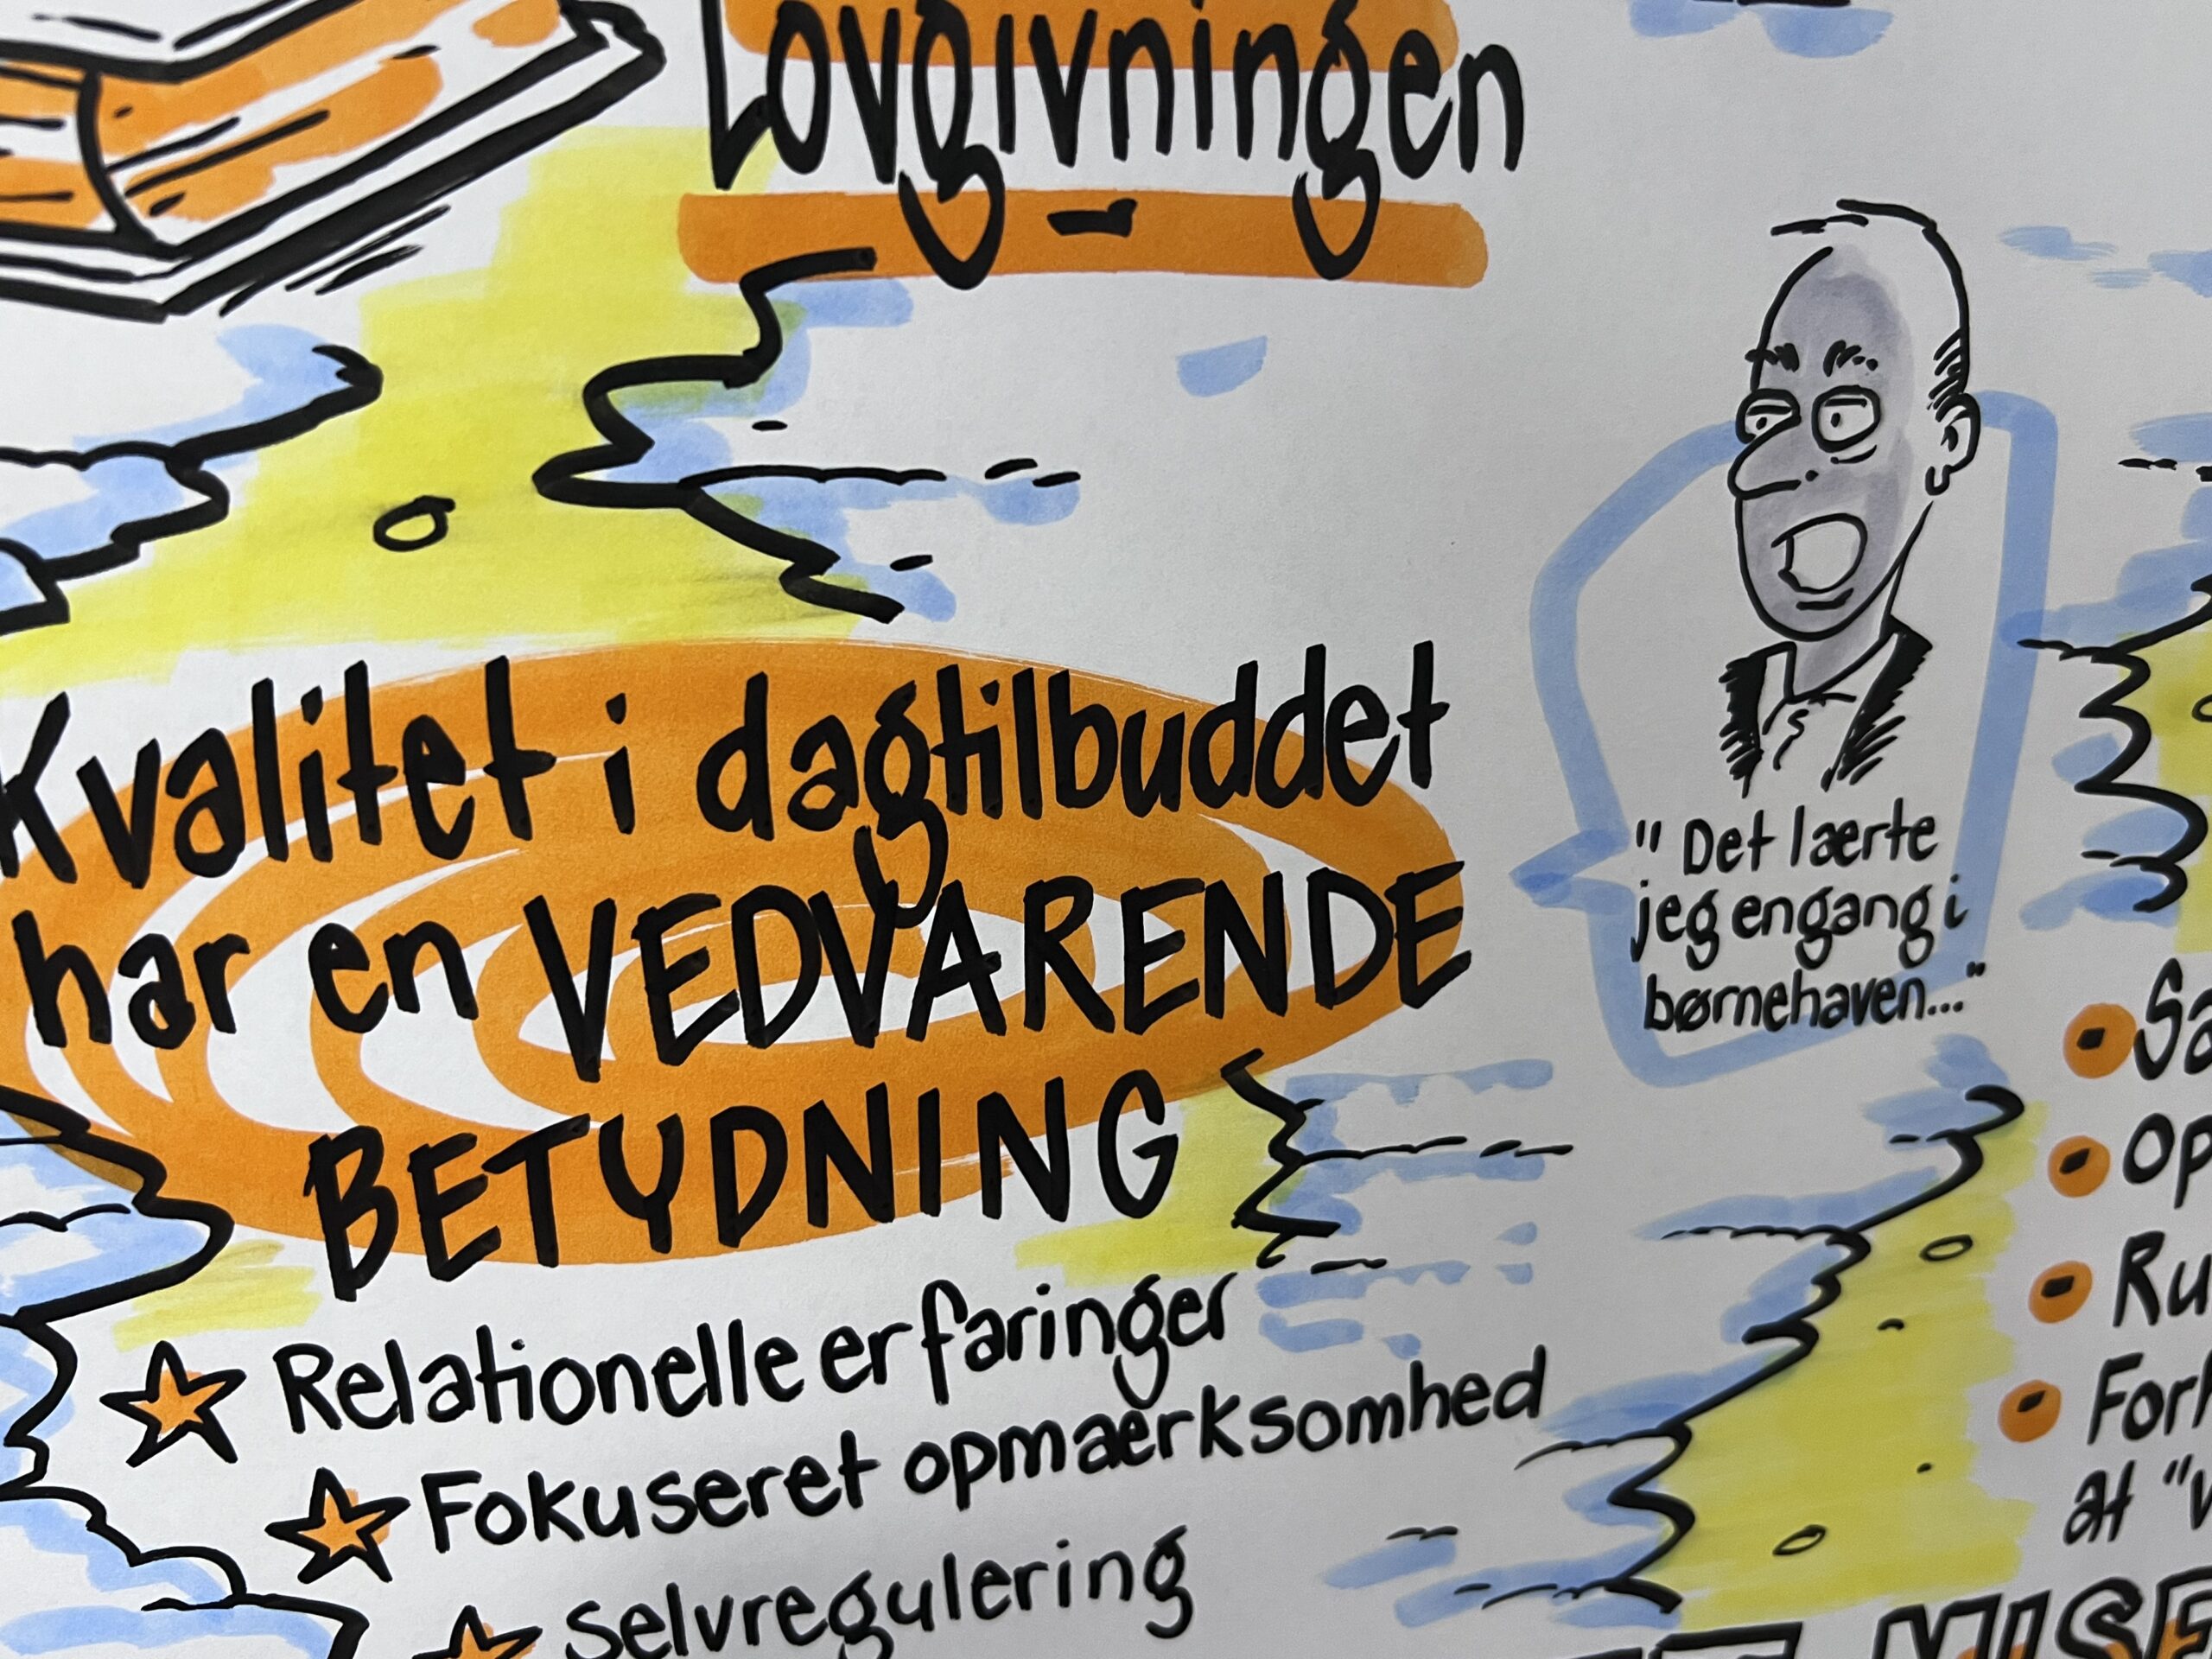 Lovgivningen
Kvalitet i dagtilbuddet
har en VEDVARENDE
BETYDNING
Relationelle erfaringer
Fokuseret opmærksomhed
Selvregulering
"Det lærte
jeg engang i
børnehaven..."
at